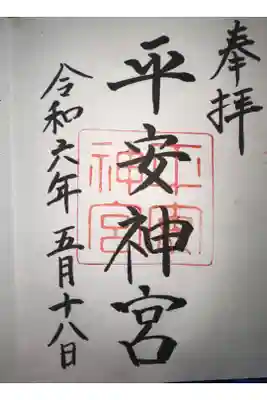 奉拝
平安神宮
平安
神宮
令和六年 五月十八日